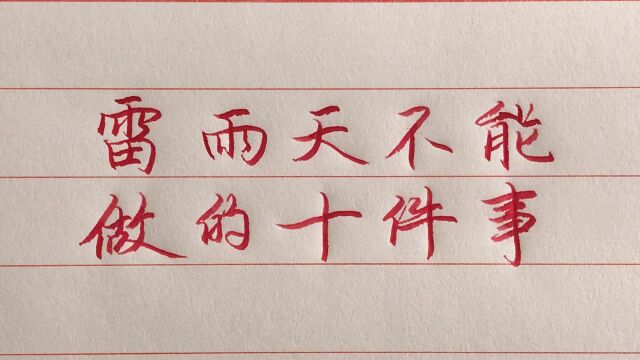 雷雨天不能
做的十件事